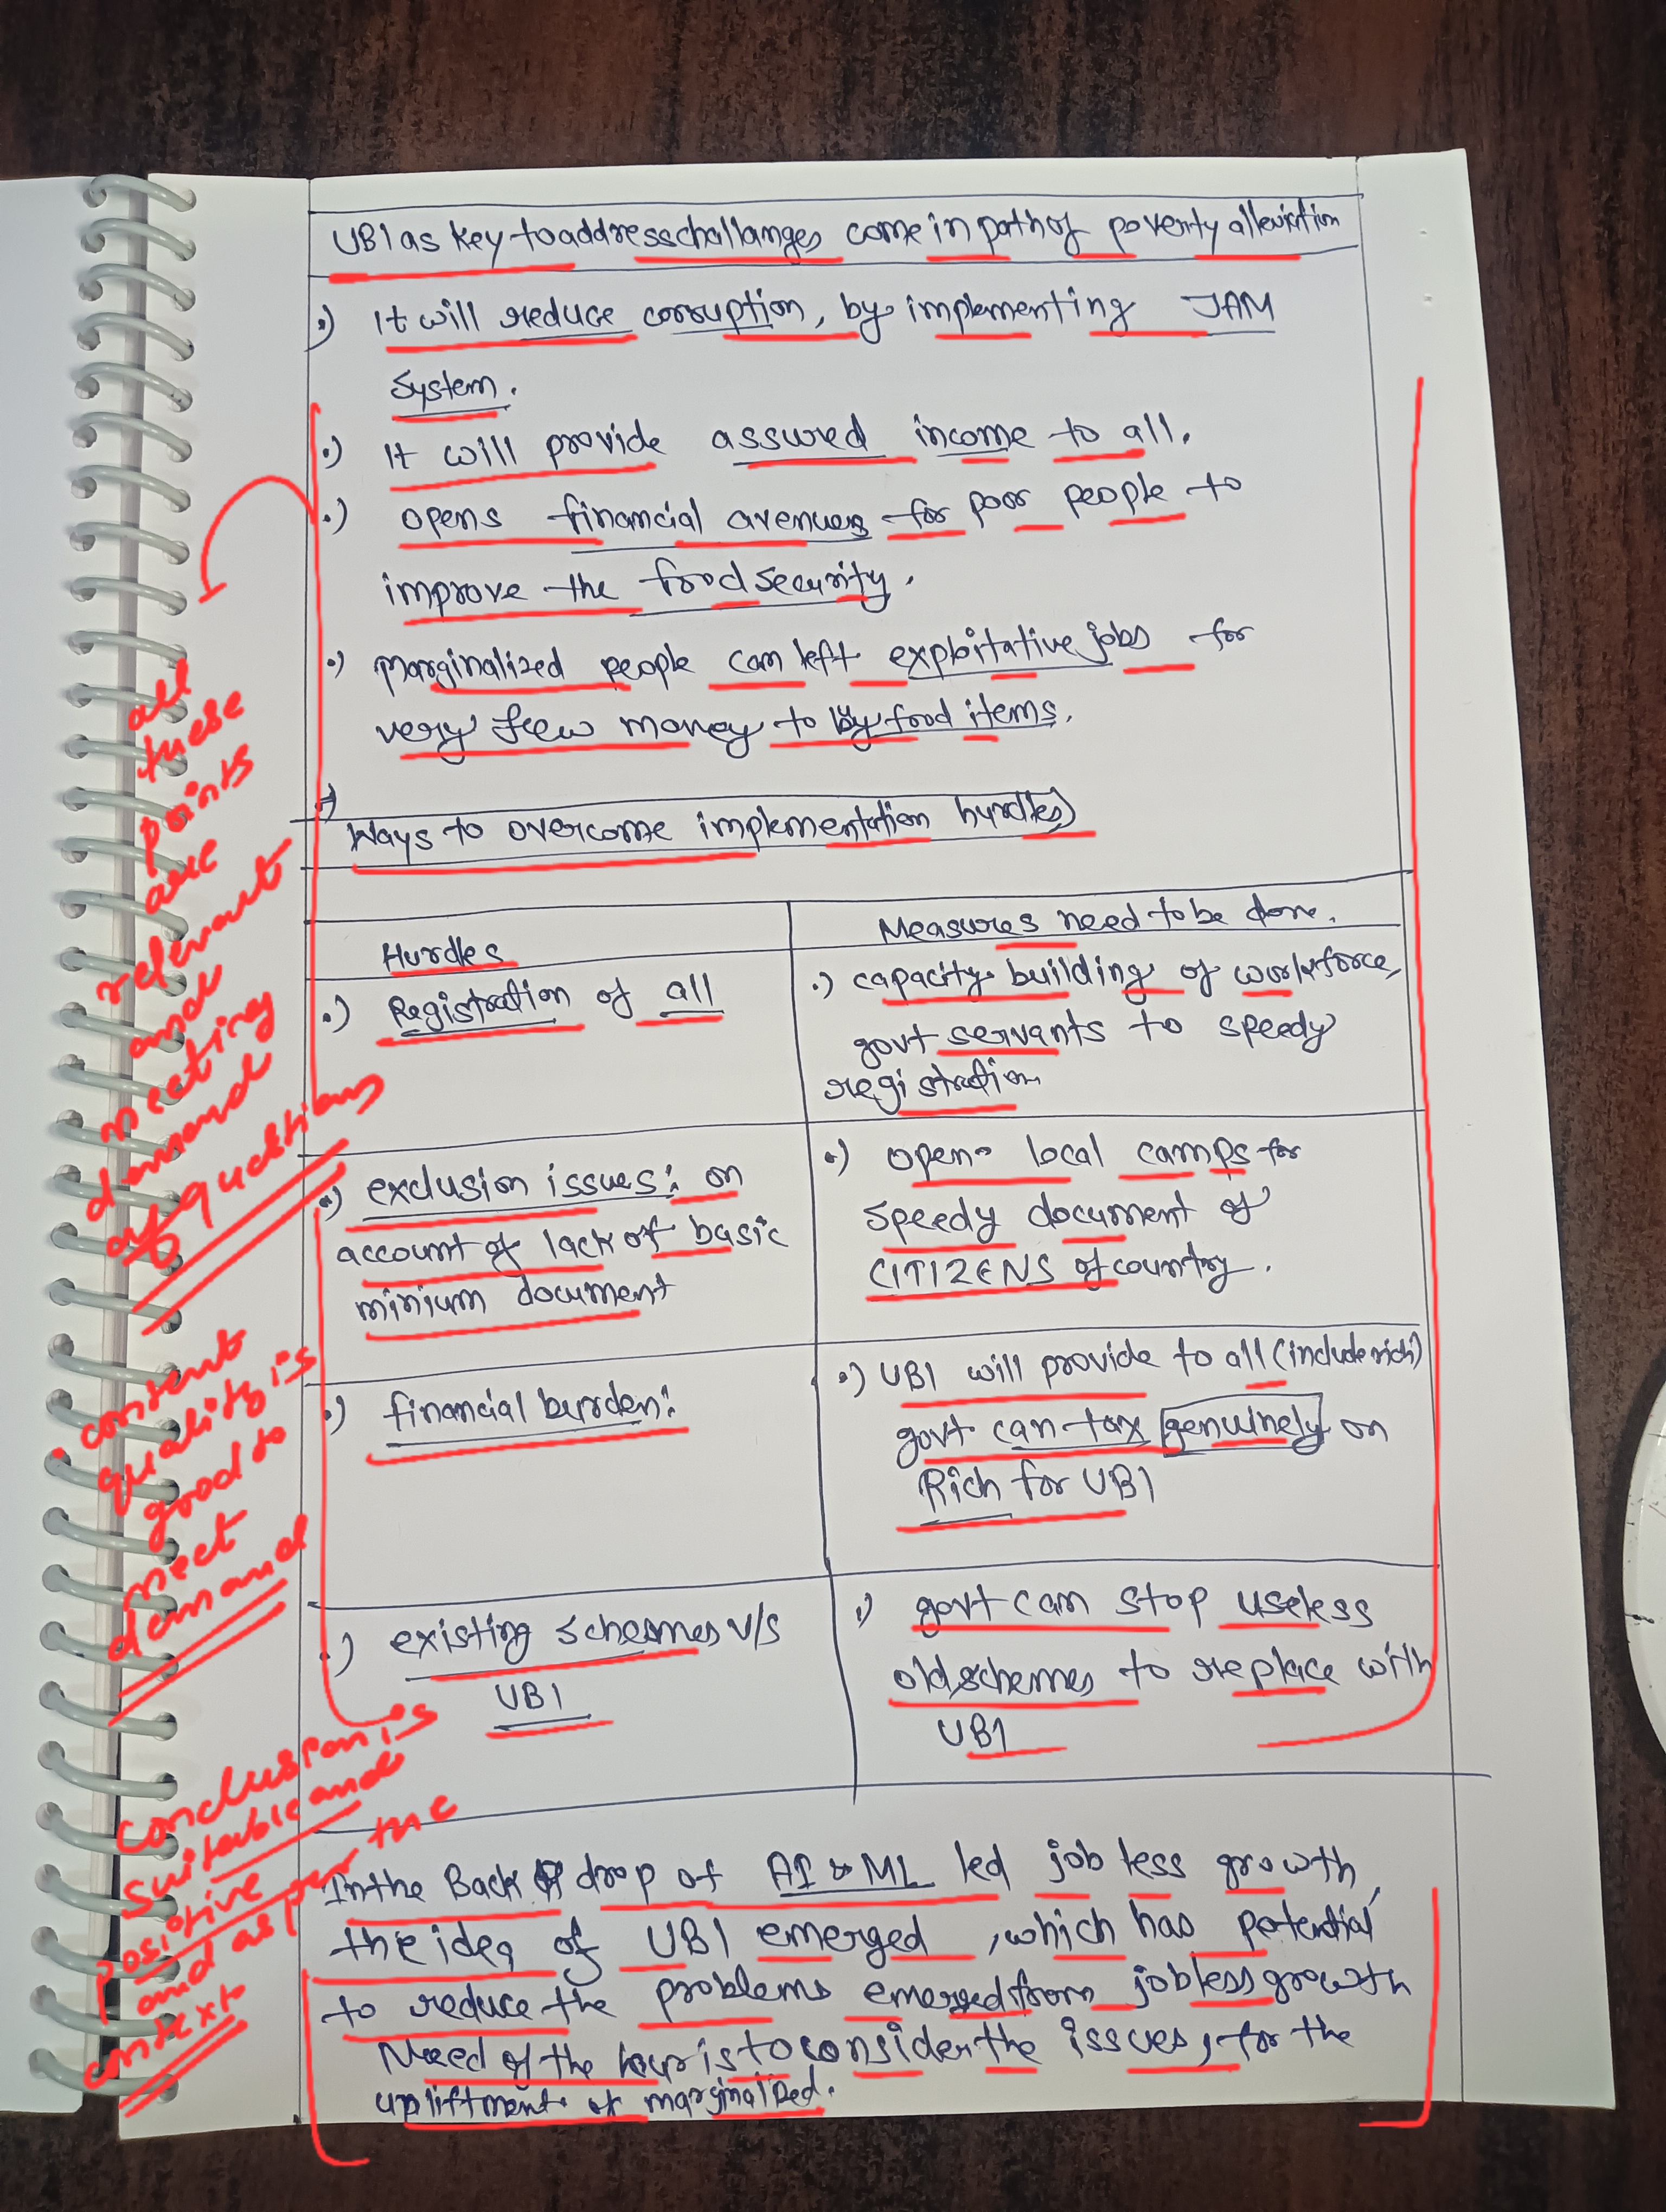 UBI as key to address challanges come in path of poverty alleviation
.) It will reduce corruption, by implementing JAM
System.
.) It will provide assured income to all.
.) opens financial avenues for poor people to
improve the food security.
.) marginalized people can left exploitative jobs for
very few money to by food items.
Ways to overcome implementation hurdles)
Hurdles
Measures need to be done.
.) Registration of all
.) capacity building of workforce,
govt servants to speedy
registration
.) exclusion issues: on
account of lack of basic
minium document
.) open local camps for
speedy document of
CITIZENS of country.
.) financial burden:
.) UBI will provide to all (include rich)
govt can tax genuinely on
Rich for UBI
.) existing schemes v/s
UBI
.) govt can stop useless
old schemes to replace with
UBI
In the Back drop of AI & ML led job less growth,
the idea of UBI emerged, which has potential
to reduce the problems emerged from jobless growth
Need of the hour is to consider the issues, for the
upliftment of marginalized.
all
these
points
are
relevant
and
meeting
demand
of questions
content
quality is
good to
meet
demand
conclusion is
suitable and
positive
and as per the
context